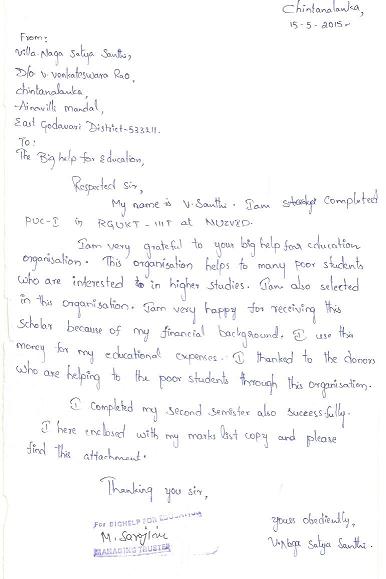 Chintanalanka,
15-5-2015.
From:
Villa Naga Satya Santhi,
D/o V. Venkateswara Rao,
chintanalanka,
Ainavilli mandal,
East Godavari District-533211.
To:
The Big help for Education,
Respected Sir,
My name is V. Santhi. I am completed
PUC-I in RGUKT-IIIT at NUZVID.
I am very grateful to your big help for education
organisation. This organisation helps to many poor students
who are interested in higher studies. I am also selected
in this organisation. I am very happy for receiving this
scholar because of my financial background. I use this
money for my educational expenses. I thanked to the donors
who are helping to the poor students through this organisation.
I completed my second semister also successfully.
I here enclosed with my marks list copy and please
find this attachment.
Thanking you sir,
For BIGHELP FOR EDUCATION
M. Sarojini
MANAGING TRUSTEE
yours obediently,
V. Naga Satya Santhi.